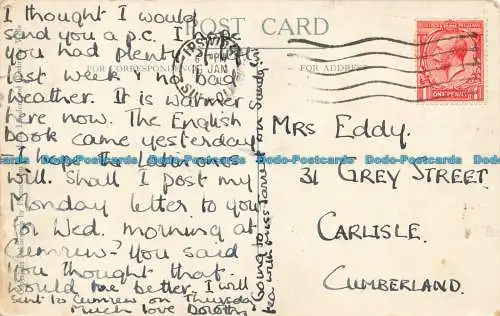 POST CARD
FOR CORRESPONDENCE
FOR ADDRESS
IPSWICH
PM
JAN
SUFFOLK
ONE PENNY
I thought I would
send you a p.c. I hope
you had plenty of
last week & no bad
weather. It is warmer
here now. The English
book came yesterday
I hope the other ones
will. Shall I post my
Monday letter to you
for Wed. morning at
Cumrew? You said
you thought that
would be better. I will
send to Cumrew on Thursday
Much love Dorothy
Going to
tea with miss on Sunday.
Mrs Eddy.
31 GREY STREET
CARLISLE.
CUMBERLAND.
Dodo-Postcards Dodo-Postcards Dodo-Postcards Dodo-Postcards Dodo-Postcards Dodo-Postcards